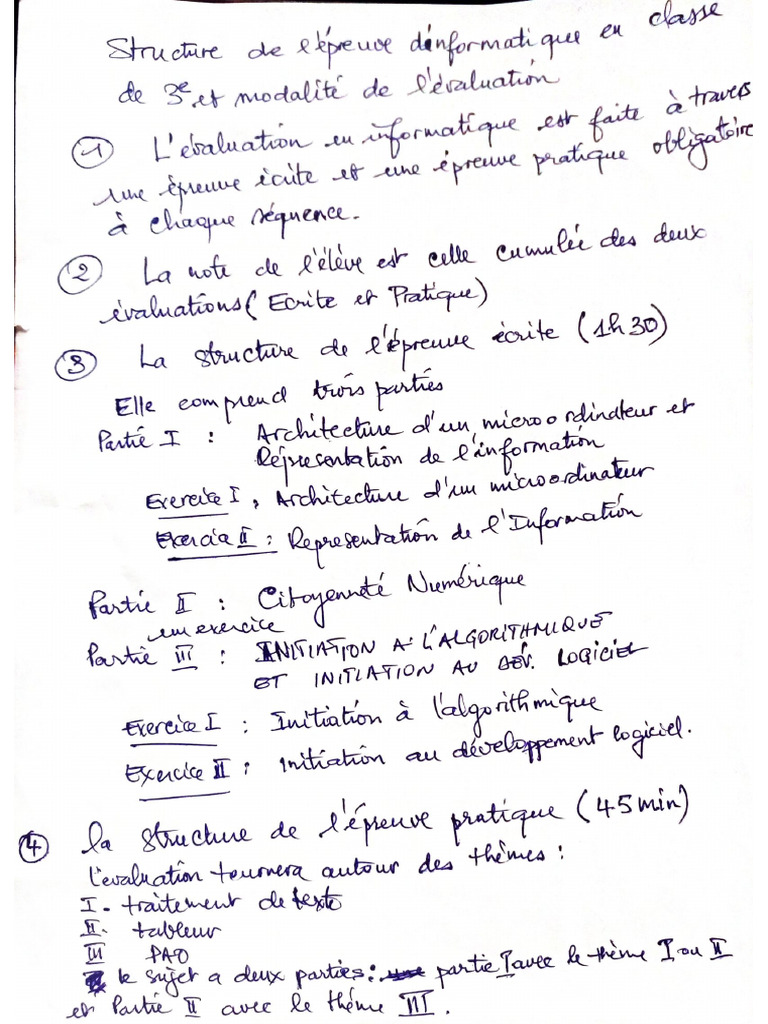 Structure de l'épreuve d'informatique en classe
de 3e et modalité de l'évaluation
1 L'évaluation en informatique est faite à travers
une épreuve écrite et une épreuve pratique obligatoire
à chaque séquence.
2 La note de l'élève est celle cumulée des deux
évaluations (Ecrite et Pratique)
3 La structure de l'épreuve écrite (1h30)
Elle comprend trois parties
Partie I : Architecture d'un microordinateur et
Réprésentation de l'information
Exercice I, Architecture d'un microordinateur
Exercice II : Representation de l'Information
Partie II : Citoyenneté Numérique
un exercice
Partie III : INITIATION A L'ALGORITHMIQUE
ET INITIATION AU DEV. LOGICIEL
Exercice I : Initiation à l'algorithmique
Exercice II : initiation au développement logiciel.
4 la structure de l'épreuve pratique (45min)
l'evaluation tournera autour des thèmes :
I - traitement de texte
II - tableur
III PAO
le sujet a deux parties : partie I avec le thème I ou II
et Partie II avec le thème III.